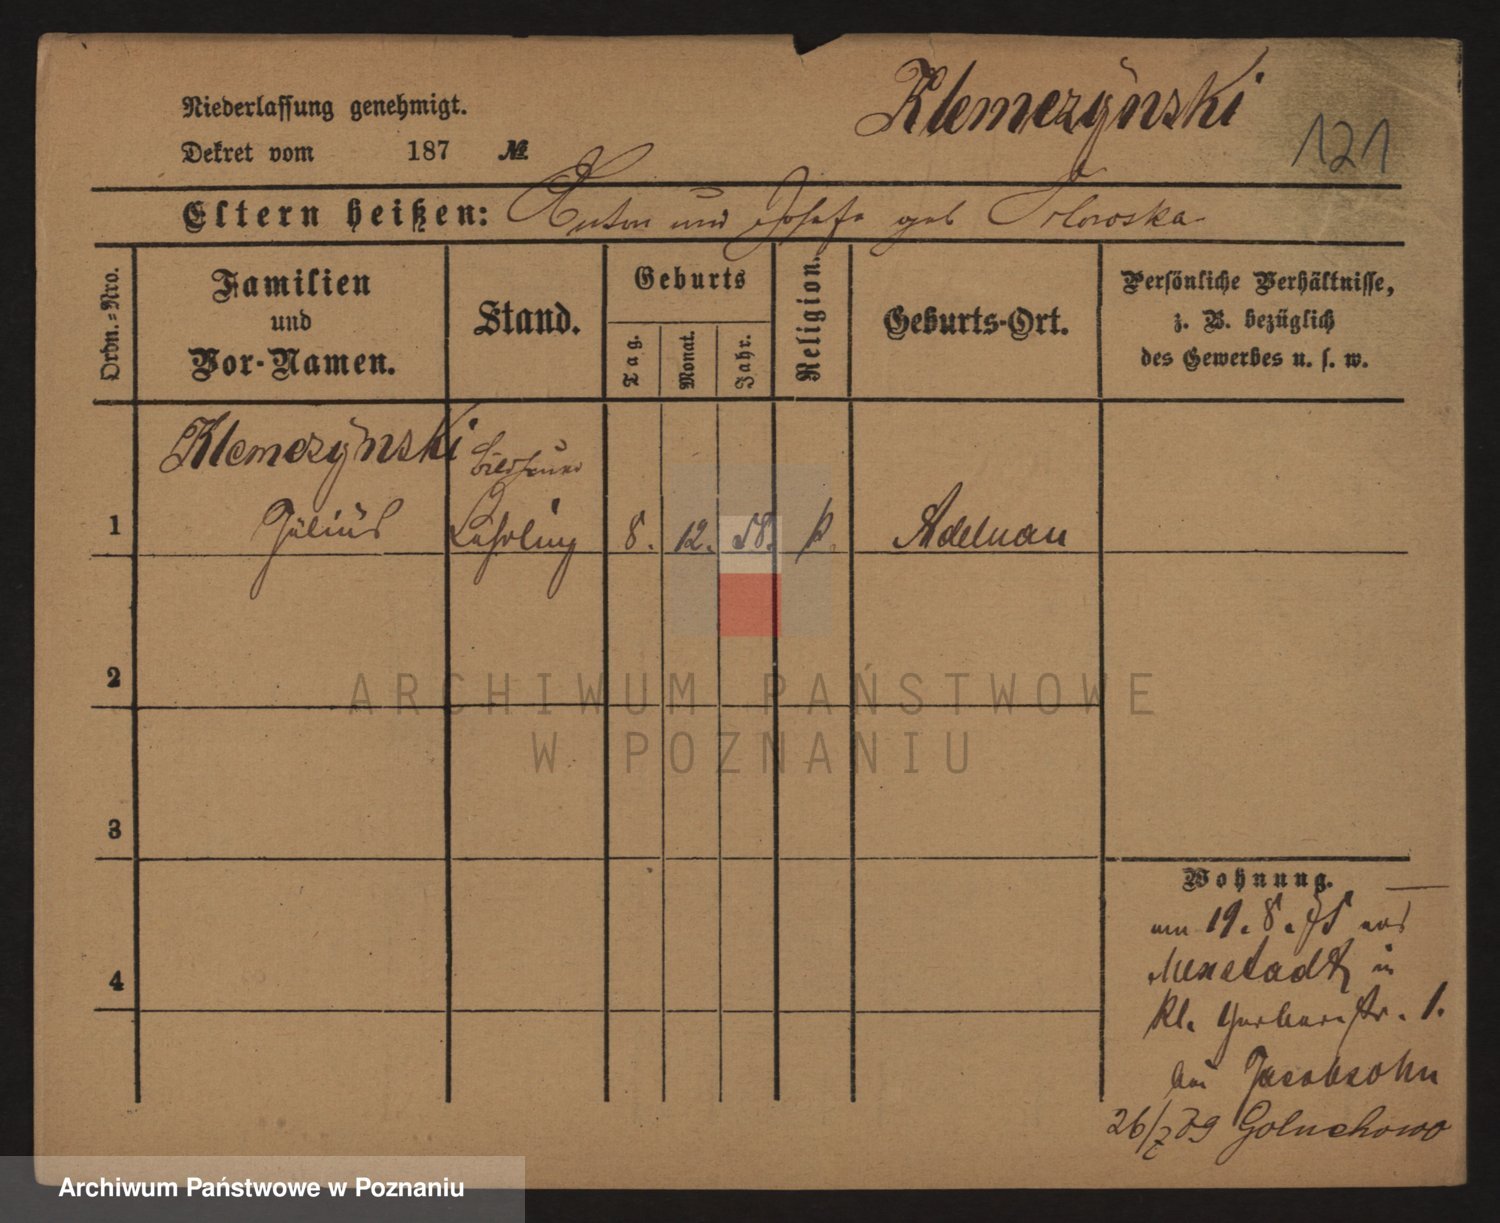 Klemczÿnski
121
Niederlassung genehmigt.
Dekret vom 187 №
Eltern heißen: Anton und Josefa geb Orlowska
Ordn.-Nro.
Familien
und
Vor-Namen.
Stand.
Geburts
Tag.
Monat.
Jahr.
Religion.
Geburts-Ort.
Persönliche Verhältnisse,
z. B. bezüglich
des Gewerbes u. s. w.
Klemczÿnski Bildhauer
1 Julius Lehrling 8. 12. 58. k. Adelnau
2
3
4
Wohnung.
am 19. 8. 75 aus
Neustadt in
kl. Gerberstr. 1.
bei Jacobsohn
26/7 79 Goluchowo
ARCHIWUM PAŃSTWOWE
W POZNANIU
Archiwum Państwowe w Poznaniu